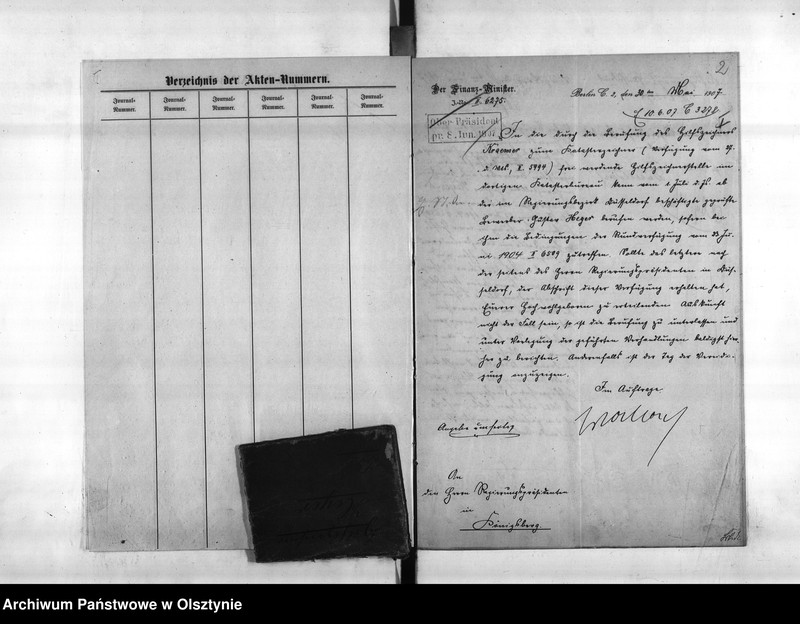 Verzeichnis der Akten-Nummern.
Journal-Nummer. Journal-Nummer. Journal-Nummer. Journal-Nummer. Journal-Nummer. Journal-Nummer.
2
Der Finanz-Minister.
J.-Nr. II. 6275.
Berlin C. 2, den 30ten Mai 1907.
10.6.07. C 3278
Ober-Präsident
pr. 8. Jun. 1907
In die durch die Berufung des Hilfszeichners
Kroemer zum Katasterzeichner (Verfügung vom
II. 5994) frei werdende Hilfszeichnerstelle im
dortigen Katasterbureau kann vom 1. Juli d. Js. ab
der im Regierungsbezirk Düsseldorf beschäftigte geprüfte
Bewerber Gustav Heger berufen werden, sofern bei
ihm die Bedingungen der Rundverfügung vom
1904 II 6589 zutreffen. Sollte das letztere nach
der seitens des Herrn Regierungspräsidenten in Düs-
seldorf, der Abschrift dieser Verfügung erhalten hat,
Euerer Hochwohlgeboren zu erteilenden Auskunft
nicht der Fall sein, so ist die Berufung zu unterlassen und
unter Vorlegung der geführten Verhandlungen baldigst hier-
her zu berichten. Anderenfalls ist der Tag der Vereidi-
gung anzuzeigen.
Im Auftrage
An
den Herrn Regierungspräsidenten
in
Königsberg.
Archiwum Państwowe w Olsztynie